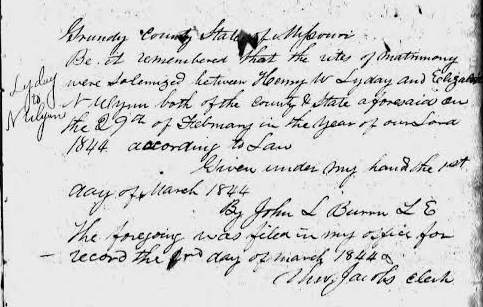 Grundy County State of Missouri
Be it remembered that the rites of matrimony
were Solemnized between Henry W Lyday and Elizabeth
N Ulynn both of the County & State aforesaid on
the 29th of February in the Year of our Lord
1844 according to Law
Given under my hand the 1st
day of March 1844
By John L Burrn L E
The foregoing was filed in my office for
record the day of march 1844
Jacobs clerk
Lyday
to
N Ulynn